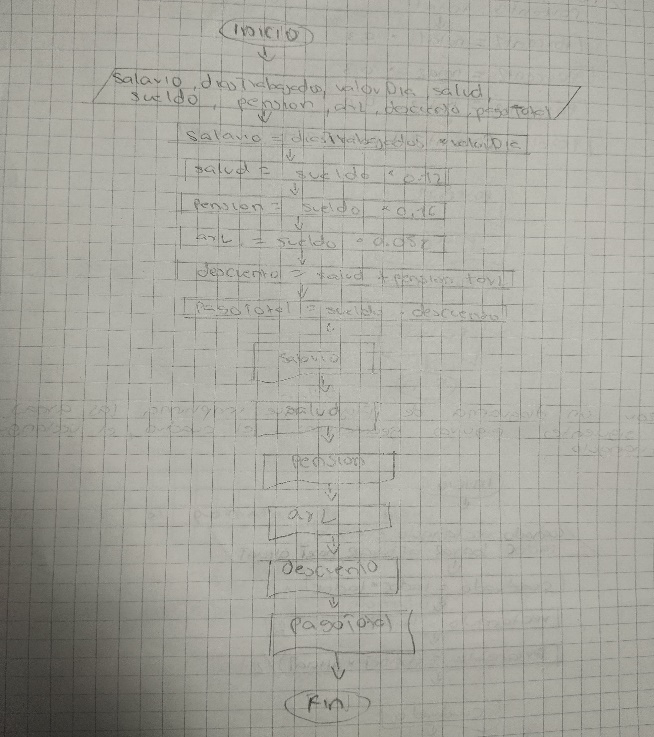 INICIO
salario, diasTrabajados, valorDia, salud,
sueldo, pension, arl, descuento, pagoTotal
salario = diasTrabajados * valorDia
salud = sueldo * 0.12
pension = sueldo * 0.16
arL = sueldo * 0.052
descuento = salud + pension + arL
pagoTotal = sueldo - descuento
salario
salud
pension
arL
descuento
pagoTotal
Fin